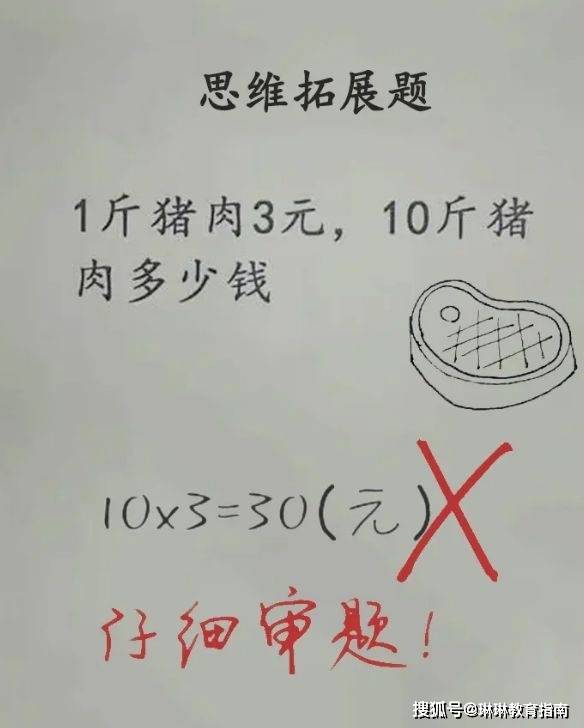 思维拓展题
1斤猪肉3元，10斤猪
肉多少钱
10×3=30(元)
仔细审题！
搜狐号@琳琳教育指南